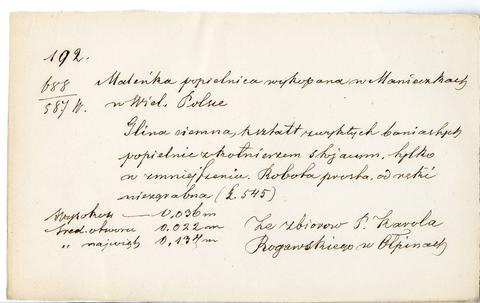 192.
688 Maleńka popielnica wykopana w Manieczkach
587 W. w Wiel. Polsce
Glina ciemna, kształt zwykłych baniastych
popielnic z kołnierzem stojącym, tylko
w zmniejszeniu. Robota prosta, od ręki
niezgrabna (L 545)
Wysokość — 0,036 m
Śred. otworu 0,022 m
" najwięk. 0,134 m
Ze zbiorów P. Karola
Rogawskiego w Ołpinach